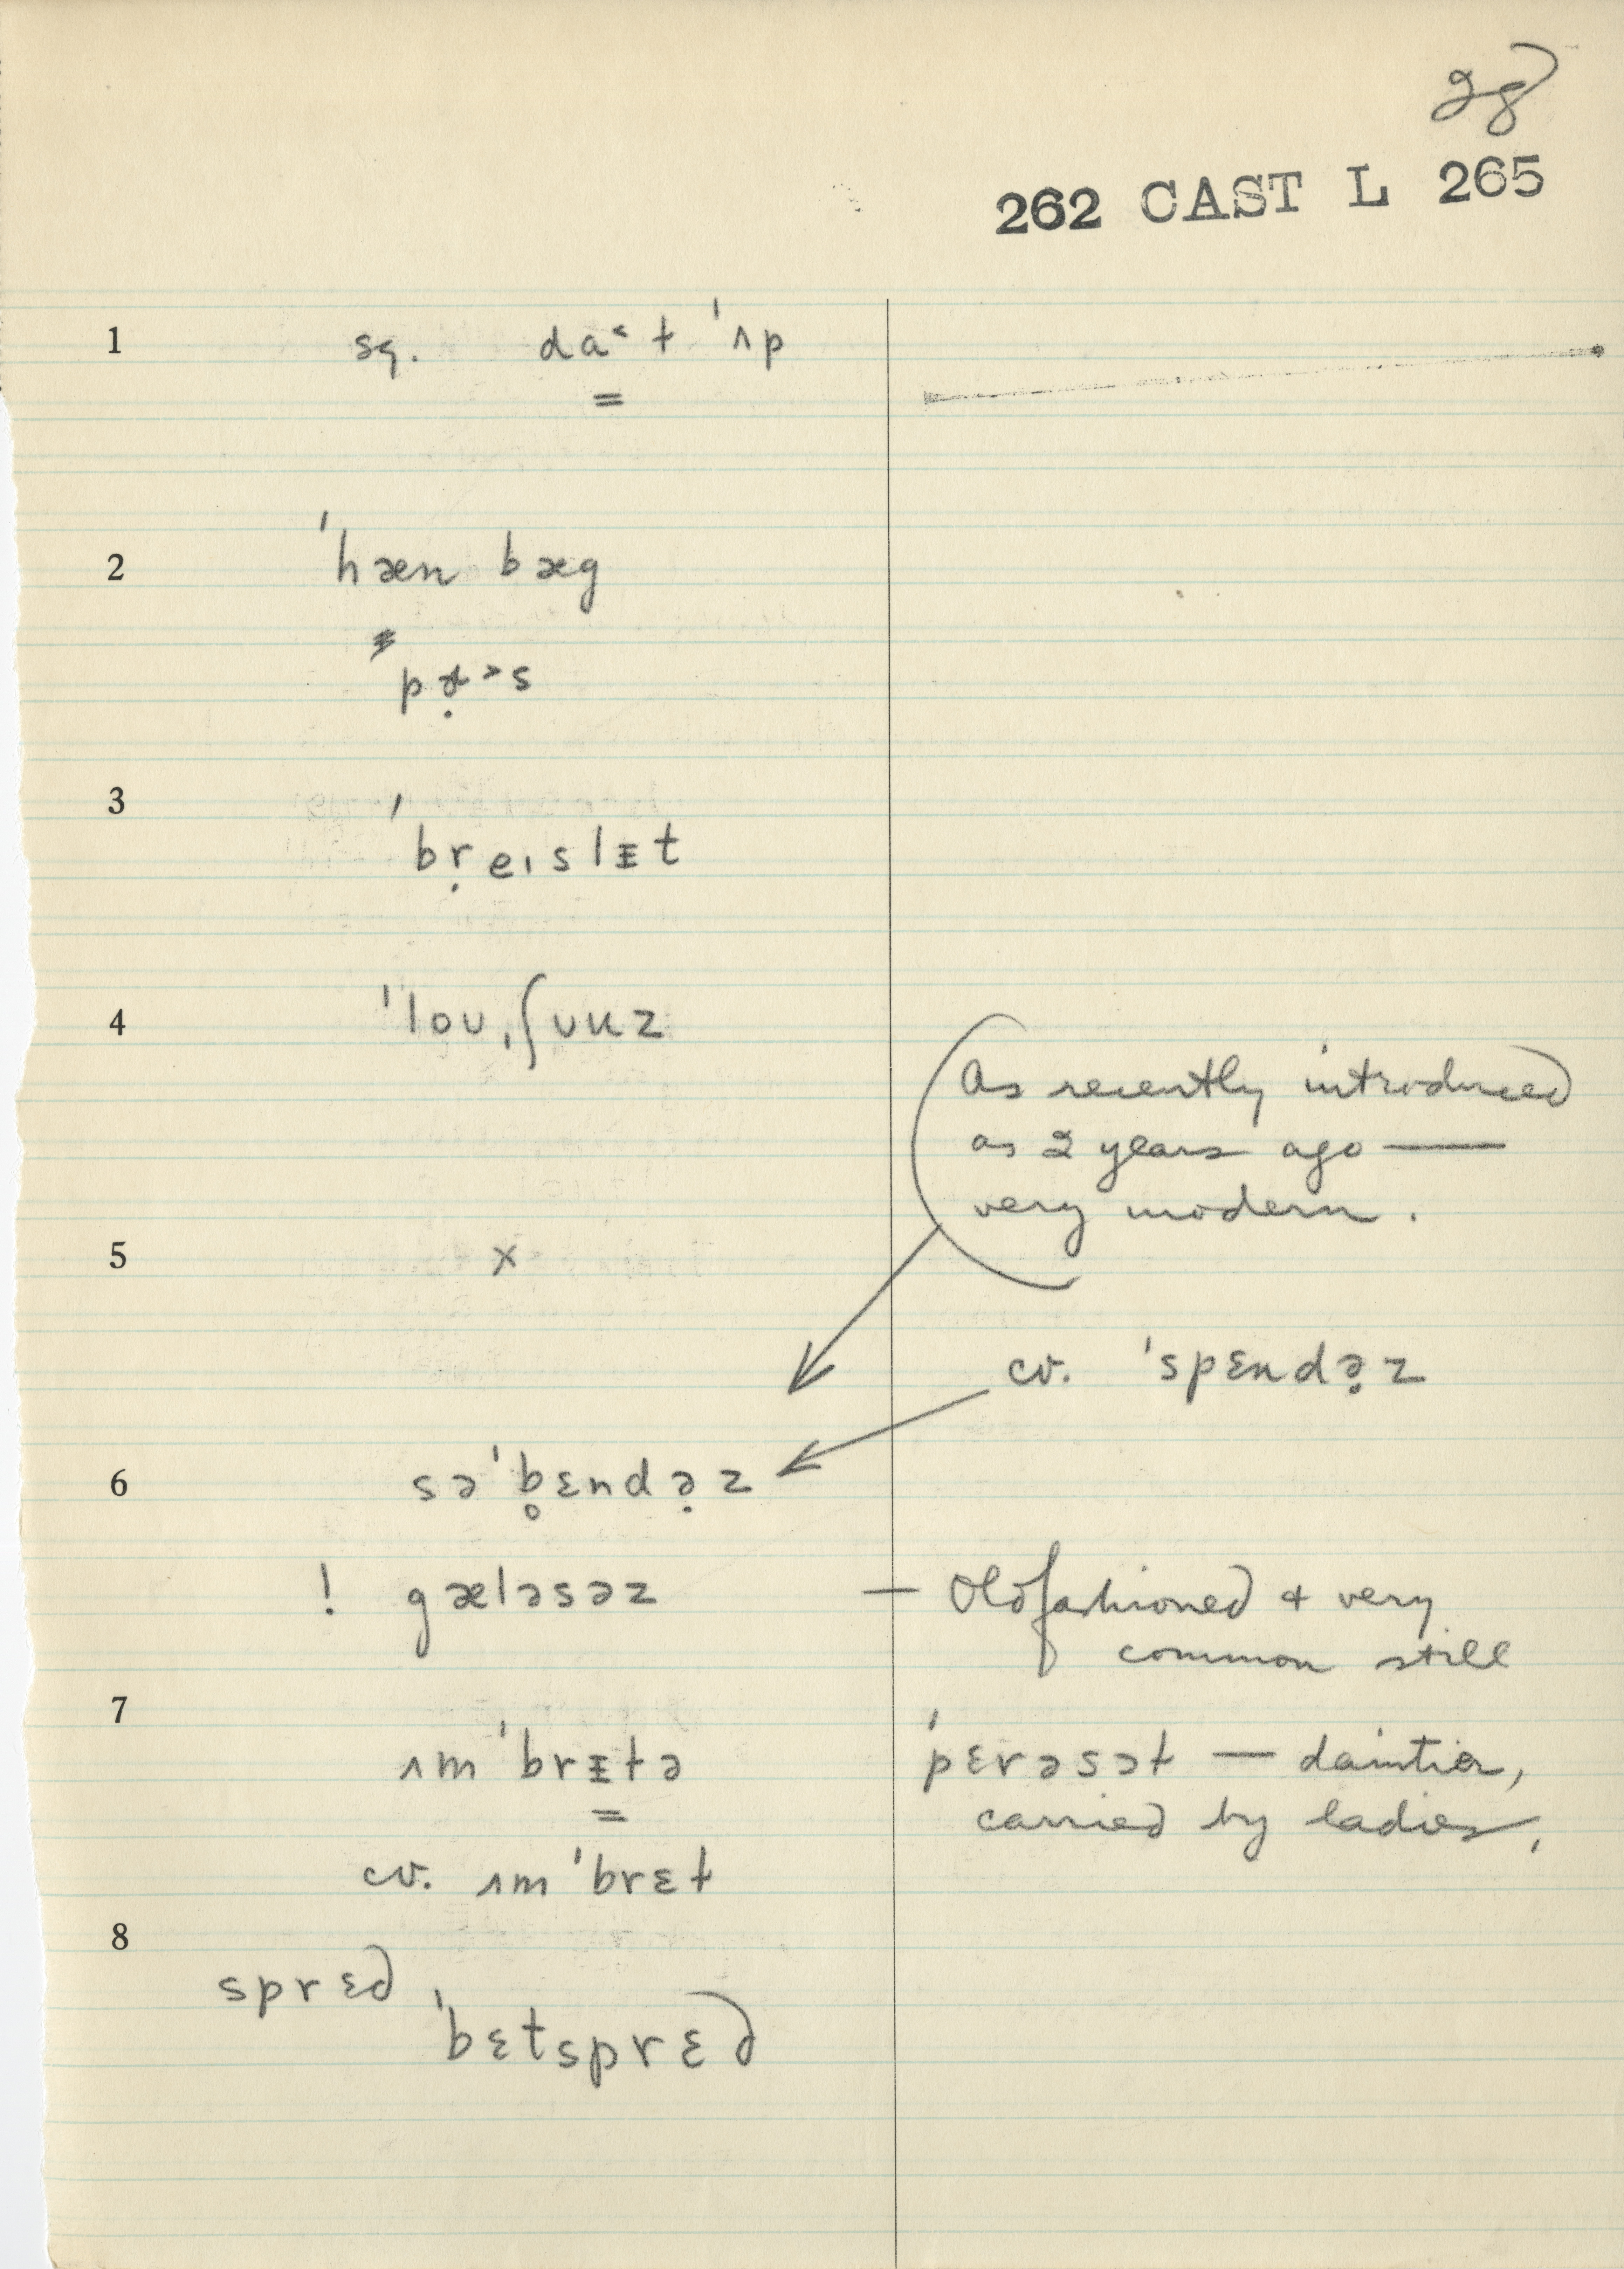 28
262 CAST L 265
1 sq. da˂t ˈʌp
2 ˈhæn bæg
3 ˈbṛeɪslᵻt
4 ˈloʊˌʃunz
As recently introduced
as 2 years ago —
very modern.
5 x
cv. ˈspɛndə̣z
6 səˈb̥ɛndə̣z
! gæləsəz — Oldfashioned & very
common still
7
ʌmˈbrᵻtə ˈpɛrəsət — daintier,
carried by ladies,
cv. ʌmˈbrɛt
8
sprɛd,
ˈbɛtsprɛd